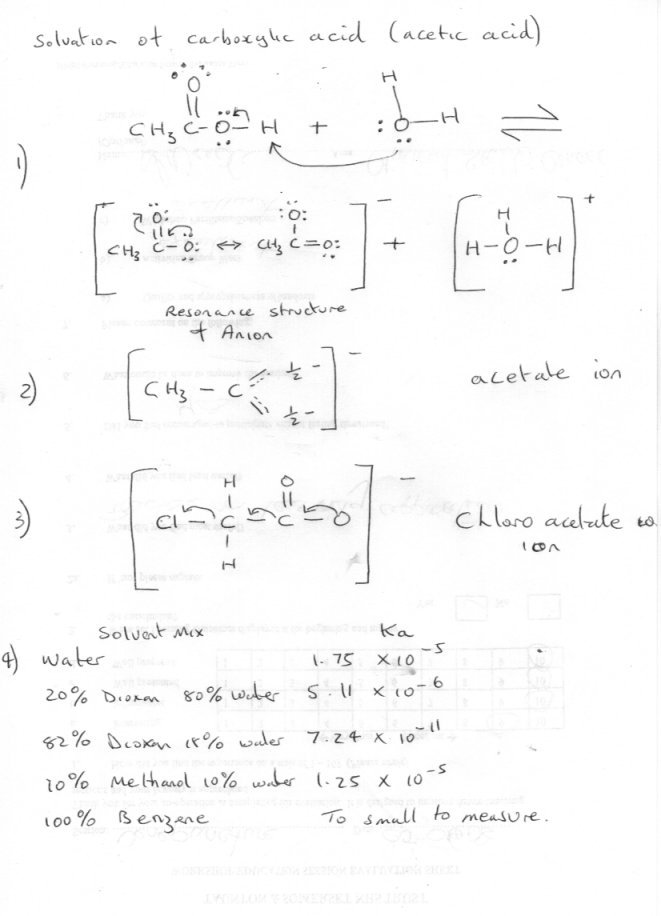 Solvation of carboxylic acid (acetic acid)
1)
O
CH3 C-O-H + H O-H ⇌
[CH3 C-O: O: ↔ CH3 C=O: :O:]- + [H-O-H H]+
Resonance structure
of Anion
2) [CH3 - C ½- ½-]- acetate ion
3) [Cl-C-C-O H H O]- Chloro acetate
ion
Solvent Mix Ka
4) Water 1.75 x 10-5
20% Dioxan 80% water 5.11 x 10-6
82% Dioxan 18% water 7.24 x 10-11
10% water 1.25 x 10-5
100% Benzene To small to measure.